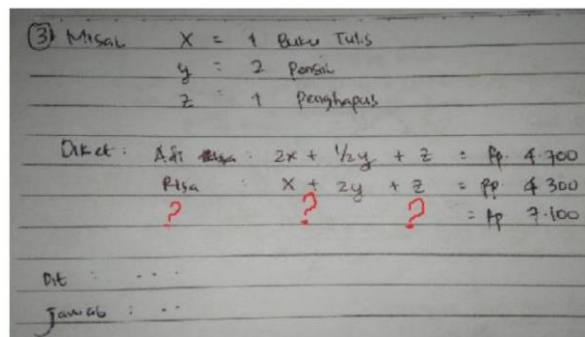 ③ Misal X = 1 Buku Tulis
y : 2 Pensil
z : 1 Penghapus
Diket : Adi : 2x + 1/2y + z = Rp. 4.700
Risa : x + 2y + z = Rp 4 300
? ? ? = Rp 7.100
Dit : . . .
Jawab : . .